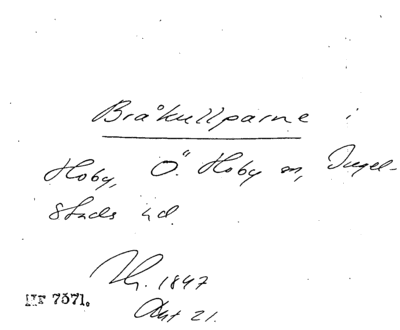 Bråkullparne i
Hoby, Ö. Hoby sn, Ingel-
stads hd.
Th. 1847
Akt 21.
HF 7371.